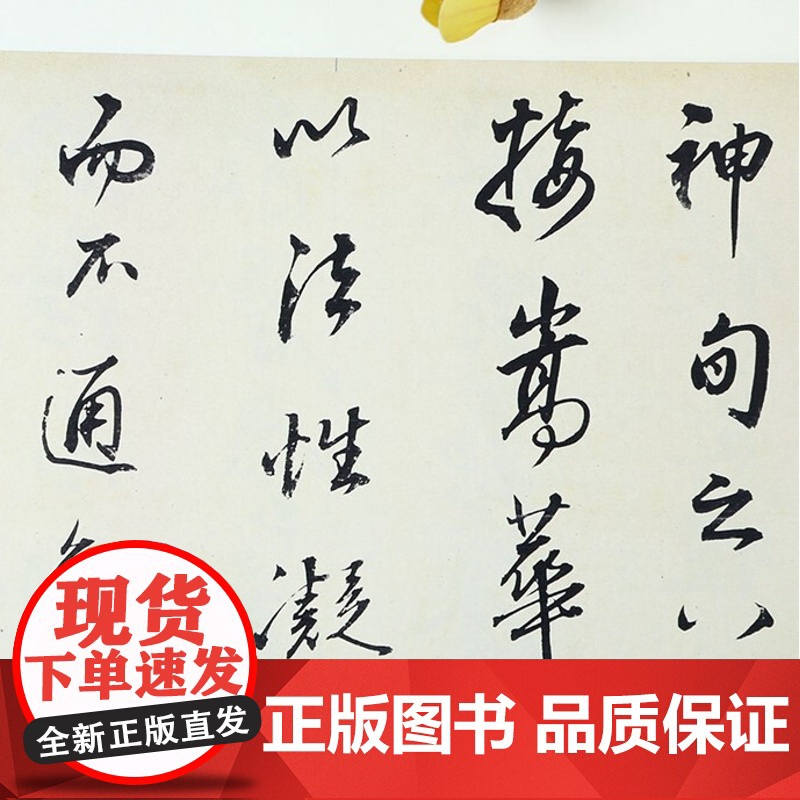 神甸之八
接嵩華
以法性凝
而不通
现货
下单速发
全新正版直发
正版图书 品质保证